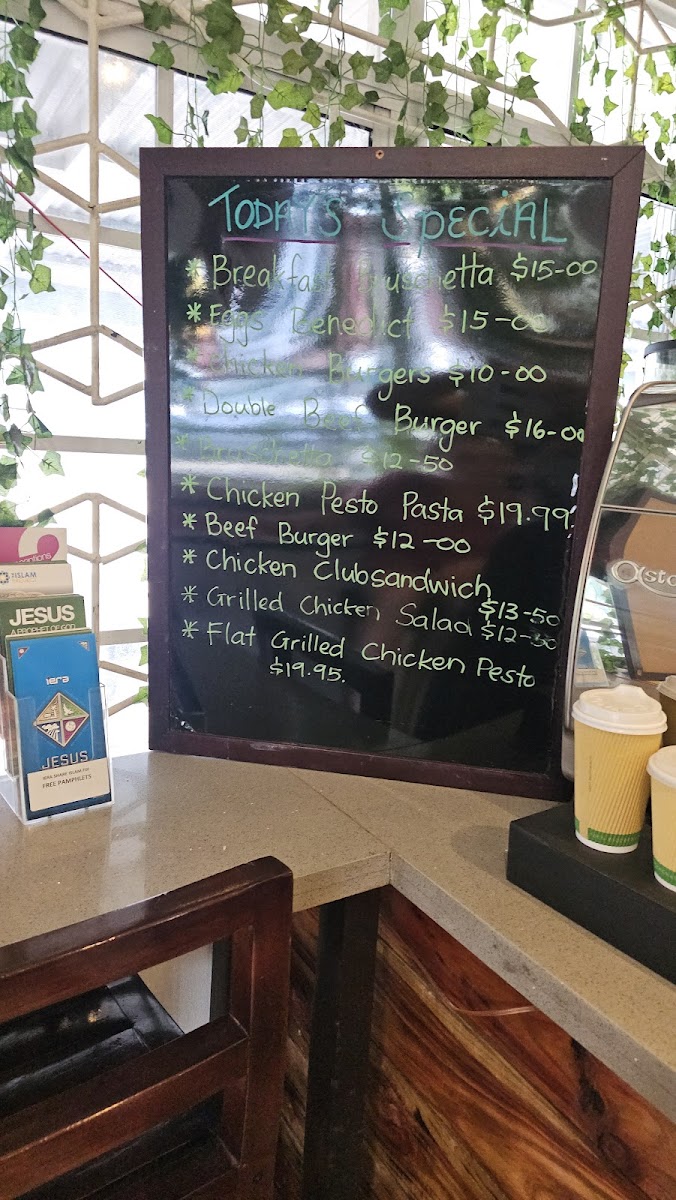 TODAY'S SPECIAL
* Breakfast Bruschetta $15-00
* Eggs Benedict $15-00
* Chicken Burgers $10-00
* Double Beef Burger $16-00
* Bruschetta $12-50
* Chicken Pesto Pasta $19.99.
* Beef Burger $12-00
* Chicken Clubsandwich $13-50
* Grilled Chicken Salad $12-50
* Flat Grilled Chicken Pesto
$19.95.
ISLAM
JESUS
A PROPHET OF GOD
iera
JESUS
IERA SHARE ISLAM FIJI
FREE PAMPHLETS